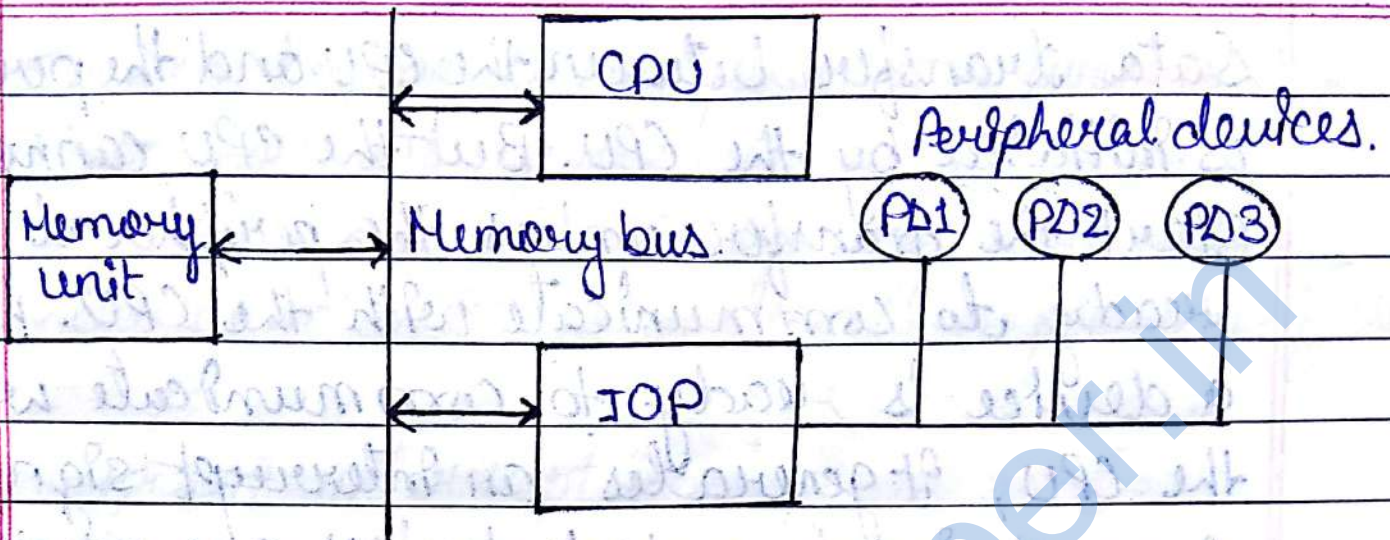 CPU
Peripheral devices.
Memory unit
Memory bus.
PD1 PD2 PD3
IOP
per.in